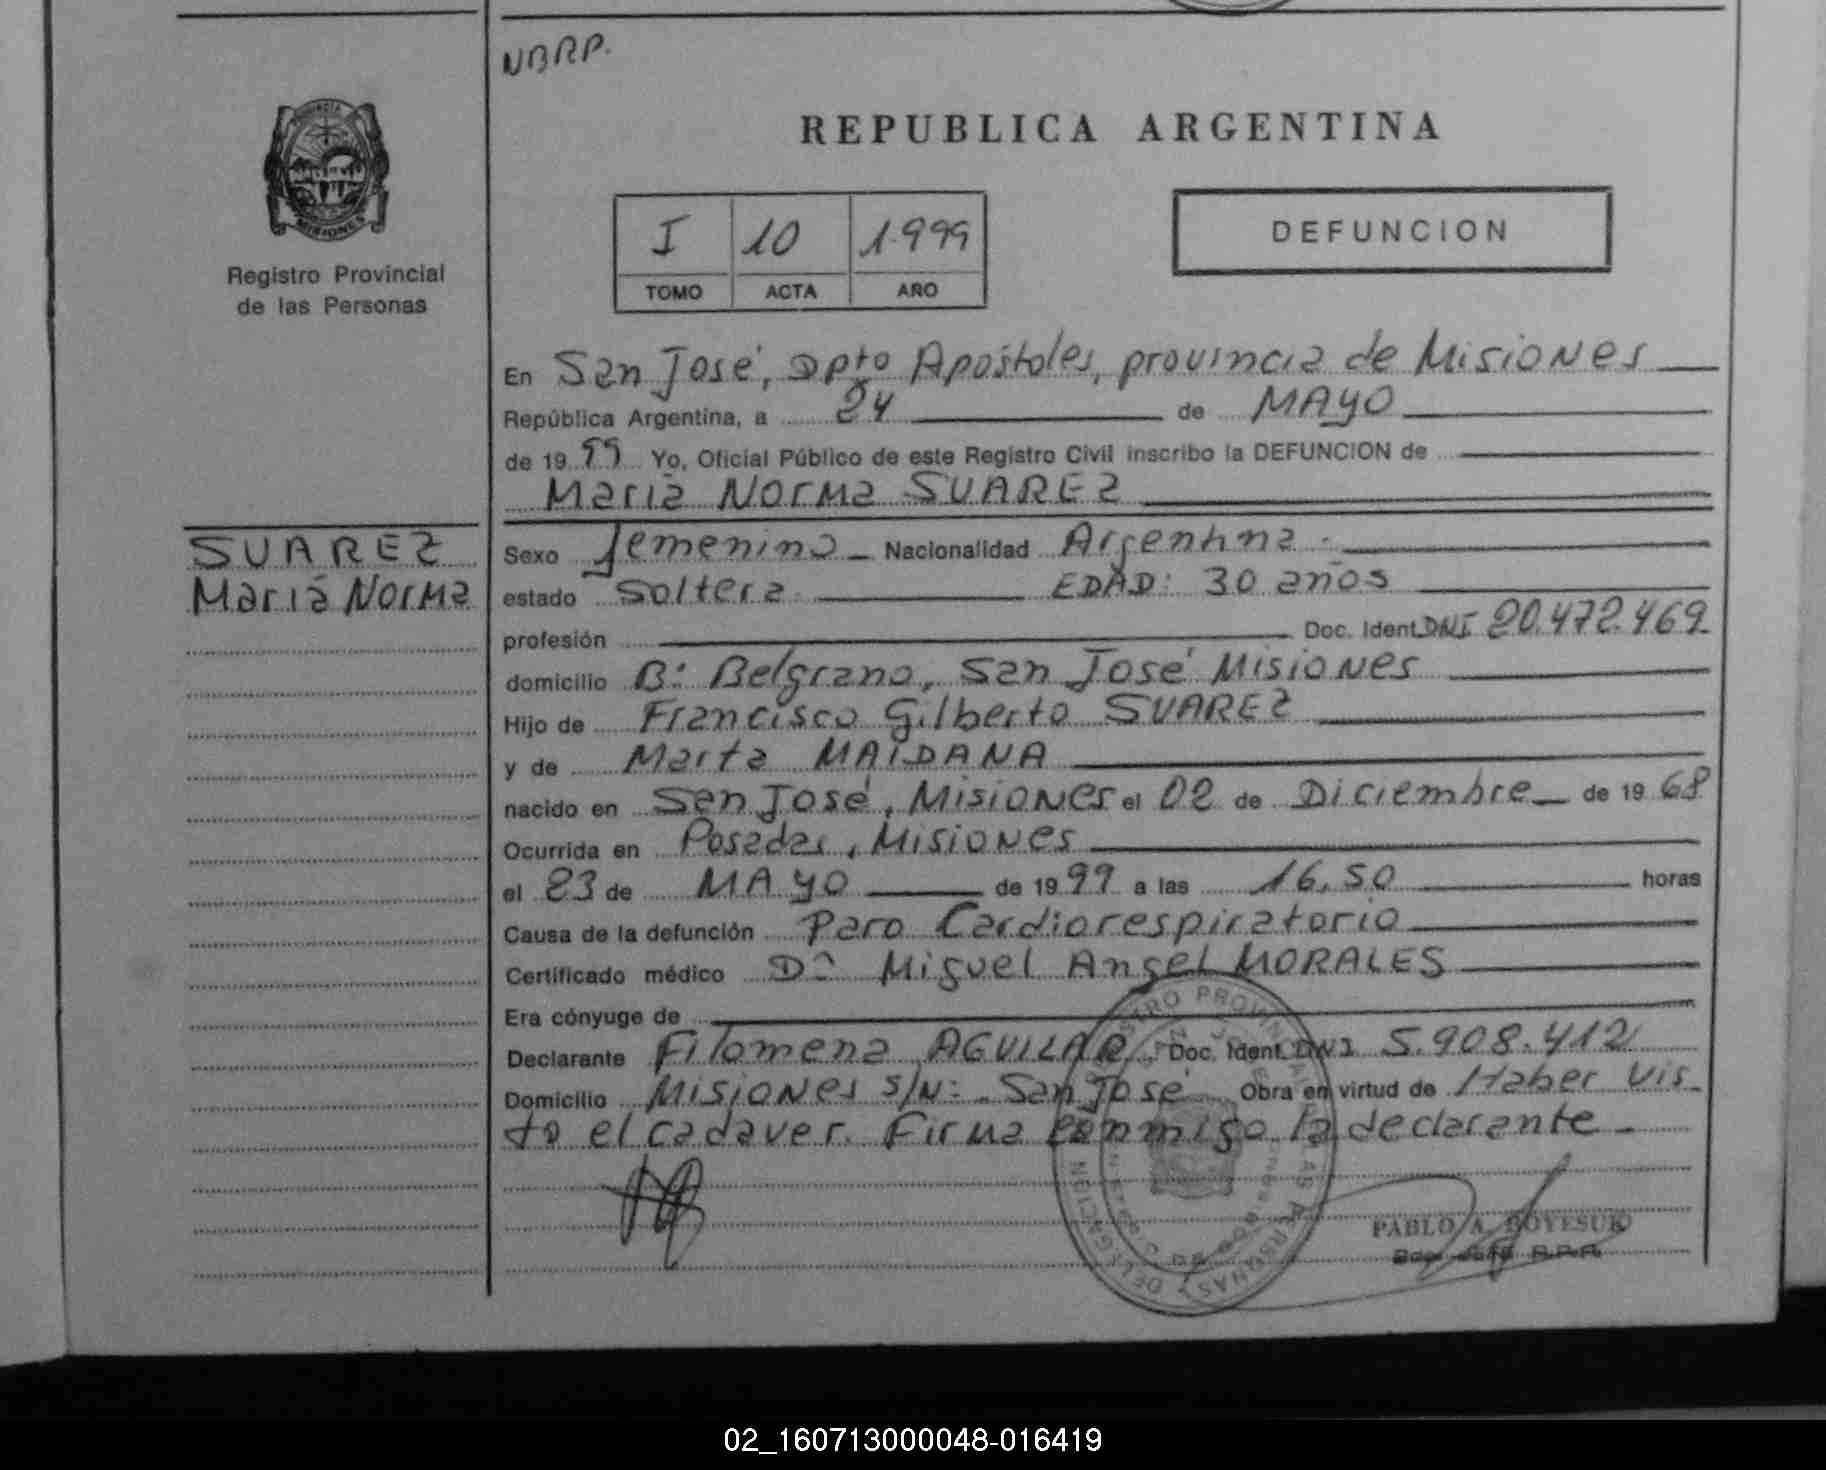 NBRP.
REPUBLICA ARGENTINA
PROVINCIA
MISIONES
Registro Provincial
de las Personas
I 10 1.999
TOMO ACTA ARO
DEFUNCION
En San José, Dpto Apóstoles, provincia de Misiones
República Argentina, a 24 de MAYO
de 19 99 Yo, Oficial Público de este Registro Civil inscribo la DEFUNCION de
María Norma SUAREZ
SUAREZ
María Norma
Sexo femenino Nacionalidad Argentina.
estado Soltera EDAD: 30 años
profesión Doc. Ident DNI 20.472.469
domicilio Bº Belgrano, San José Misiones
Hijo de Francisco Gilberto SUAREZ
y de Marta MAIDANA
nacido en San José, Misiones el 02 de Diciembre de 19 68
Ocurrida en Posadas, Misiones
el 23 de MAYO de 19 99 a las 16,50 horas
Causa de la defunción Paro Cardiorespiratorio
Certificado médico Dº Miguel Angel MORALES
Era cónyuge de
Declarante Filomena AGUILAR Doc. Ident. DNI 5.908.412
Domicilio Misiones S/N: San José Obra en virtud de Haber vis
to el cadaver. Firma conmigo la declarante
REGISTRO PROVINCIAL DE LAS PERSONAS
DELEGACION
SAN JOSE
PABLO A. BOYESUK
02_160713000048-016419